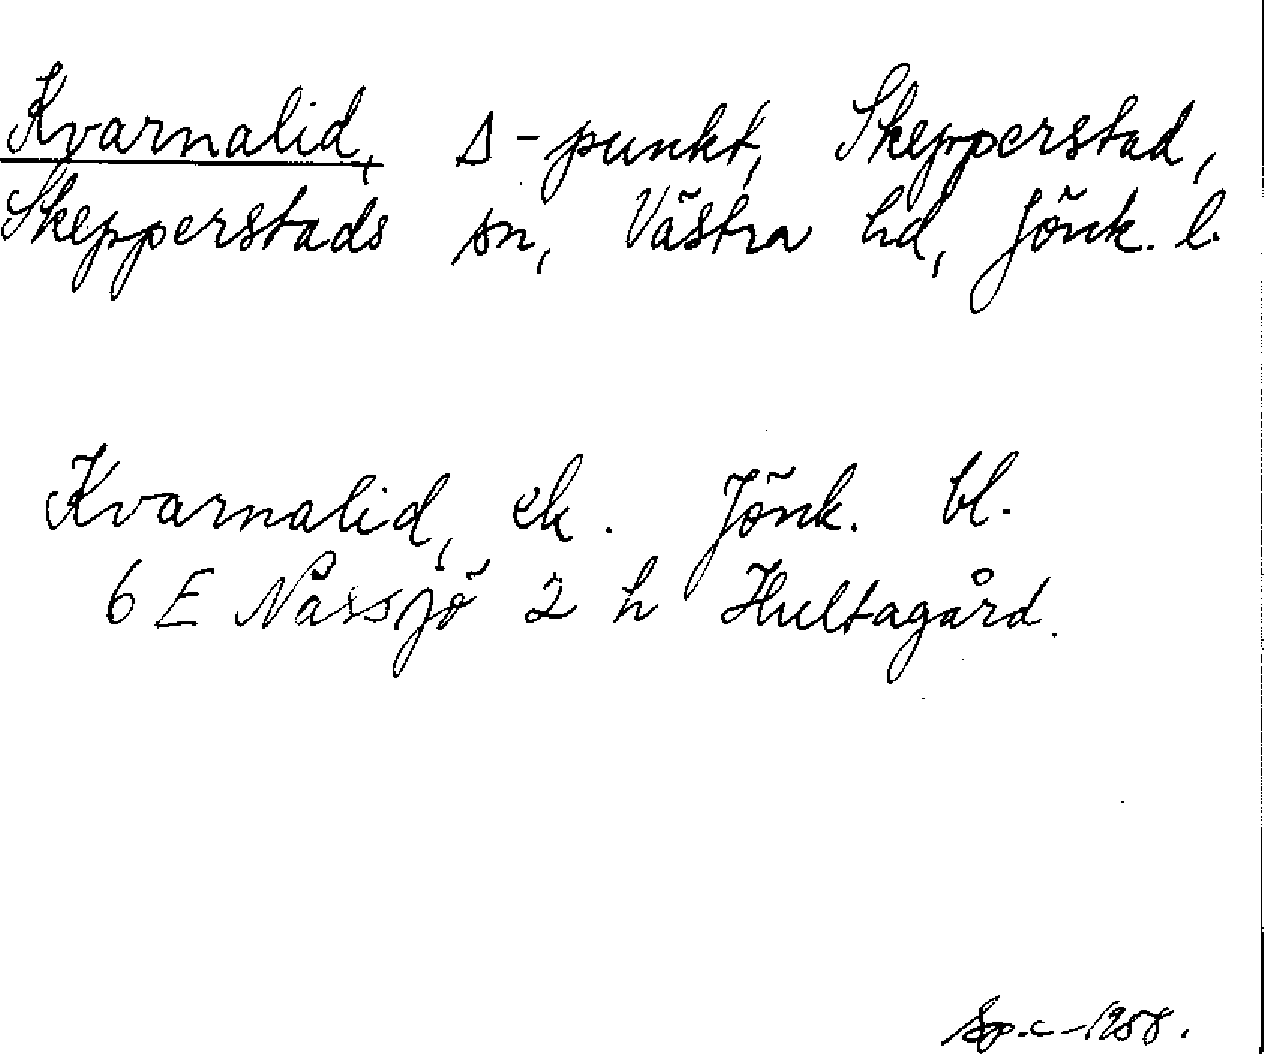 Kvarnalid, Δ-punkt, Skepperstad,
Skepperstads sn, Västra hd, Jönk. l.
Kvarnalid, ek. Jönk. bl.
6 E Nässjö 2 h Hultagård.
1958.